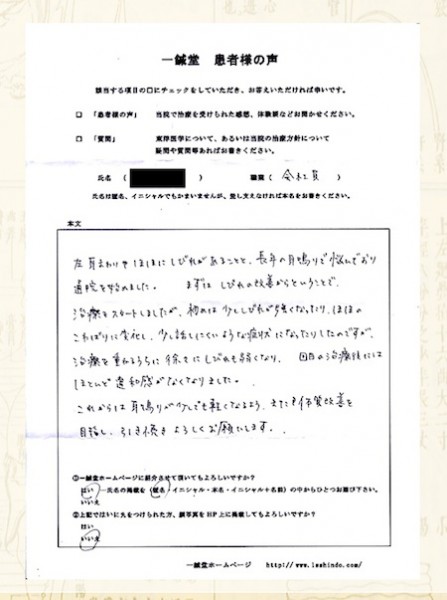 一鍼堂 患者様の声
該当する項目の□にチェックをしていただき、お答えいただければ幸いです。
□ 「患者様の声」 当院で治療を受けられた感想、体験談などお聞かせください。
□ 「質問」 東洋医学について、あるいは当院の治療方針について
疑問や質問等あればお書きください。
氏名( ) 職業( 会社員 )
氏名は匿名、イニシャルでもかまいませんが、差し支えなければ本名をお書きください。
本文
左耳まわりやほほにしびれがあることと、長年の耳鳴りで悩んでおり
通院を始めました。 まずはしびれの改善からということで、
治療をスタートしましたが、初めは少ししびれが強くなったり、ほほの
こわばりに変化し、少し話しにくいような症状になったりしたのですが、
治療を重ねるうちに徐々にしびれも弱くなり、 回目の治療後には
ほとんど違和感がなくなりました。
これからは耳鳴りが少しでも軽くなるよう、また体質改善を
目指し、引き続きよろしくお願いします。
①一鍼堂ホームページに紹介させて頂いてもよろしいですか?
はい―氏名の掲載を(匿名・イニシャル・本名・イニシャル+名前)の中からひとつお選び下さい。
いいえ
②上記ではいに丸をつけられた方、顔写真をHP上に掲載してもよろしいですか?
はい
いいえ
一鍼堂ホームページ http://www.isshindo.com/